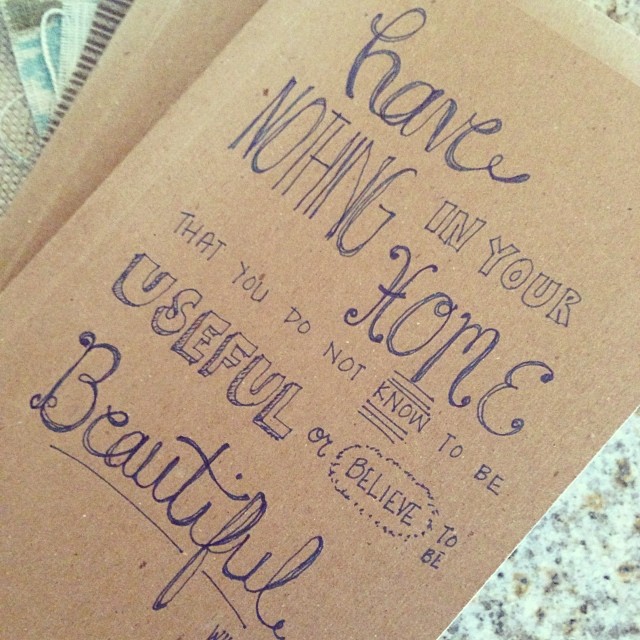 have
NOTHING IN YOUR
HOME
THAT YOU DO NOT KNOW TO BE
USEFUL or BELIEVE TO
BE
Beautiful